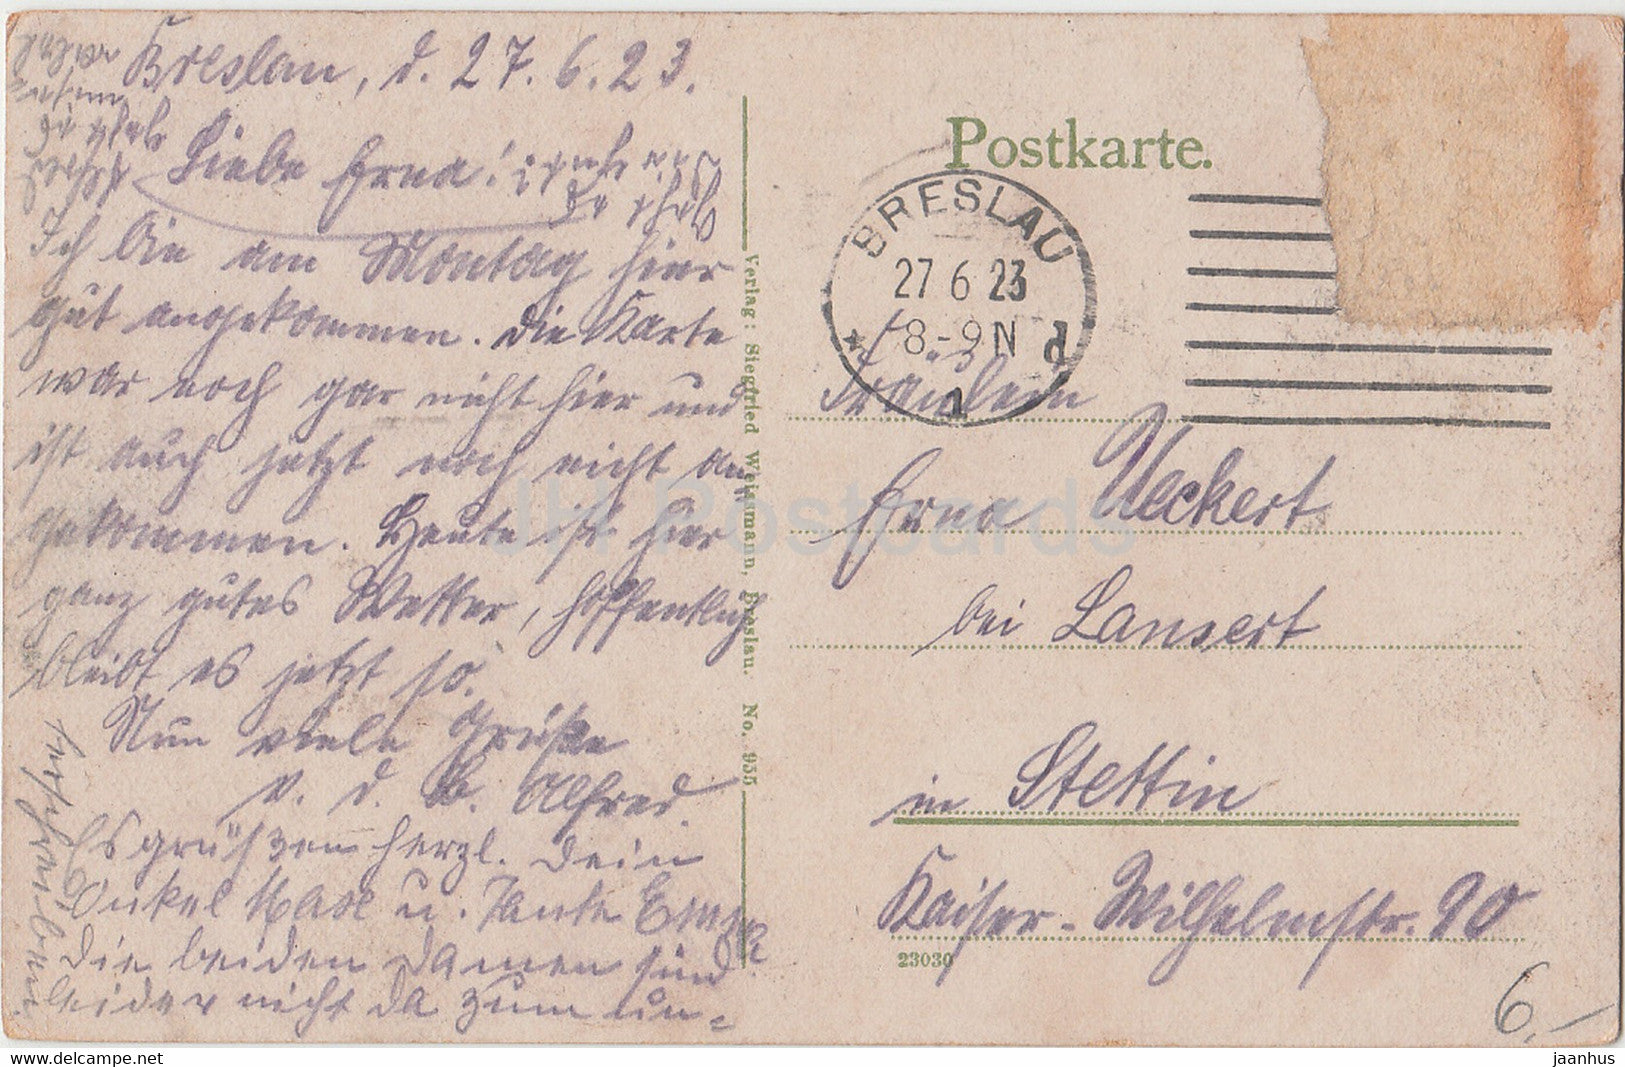 Breslau, d. 27.6.23.
Liebe Erna!
Ich bin am Montag hier
gut angekommen. Die Karte
war noch gar nicht hier und
ist auch jetzt noch nicht an
gekommen. Heute ist hier
ganz gutes Wetter, hoffentlich
bleibt es jetzt so.
Nun viele Grüße
v. d. b. Alfred.
Es grüßen herzl. Dein
Onkel Max u. Tante Emma
Die beiden Damen sind
leider nicht da zum un-
terschreiben.
Verlag: Siegfried Weissmann, Breslau. No. 935
Postkarte.
BRESLAU
27 6 23
8-9N
* 1 d
Fräulein
Erna Ueckert
bei Lansert
in Stettin
Kaiser-Wilhelmstr. 90
23030
6,-
JH Postcards
www.delcampe.net
jaanhus